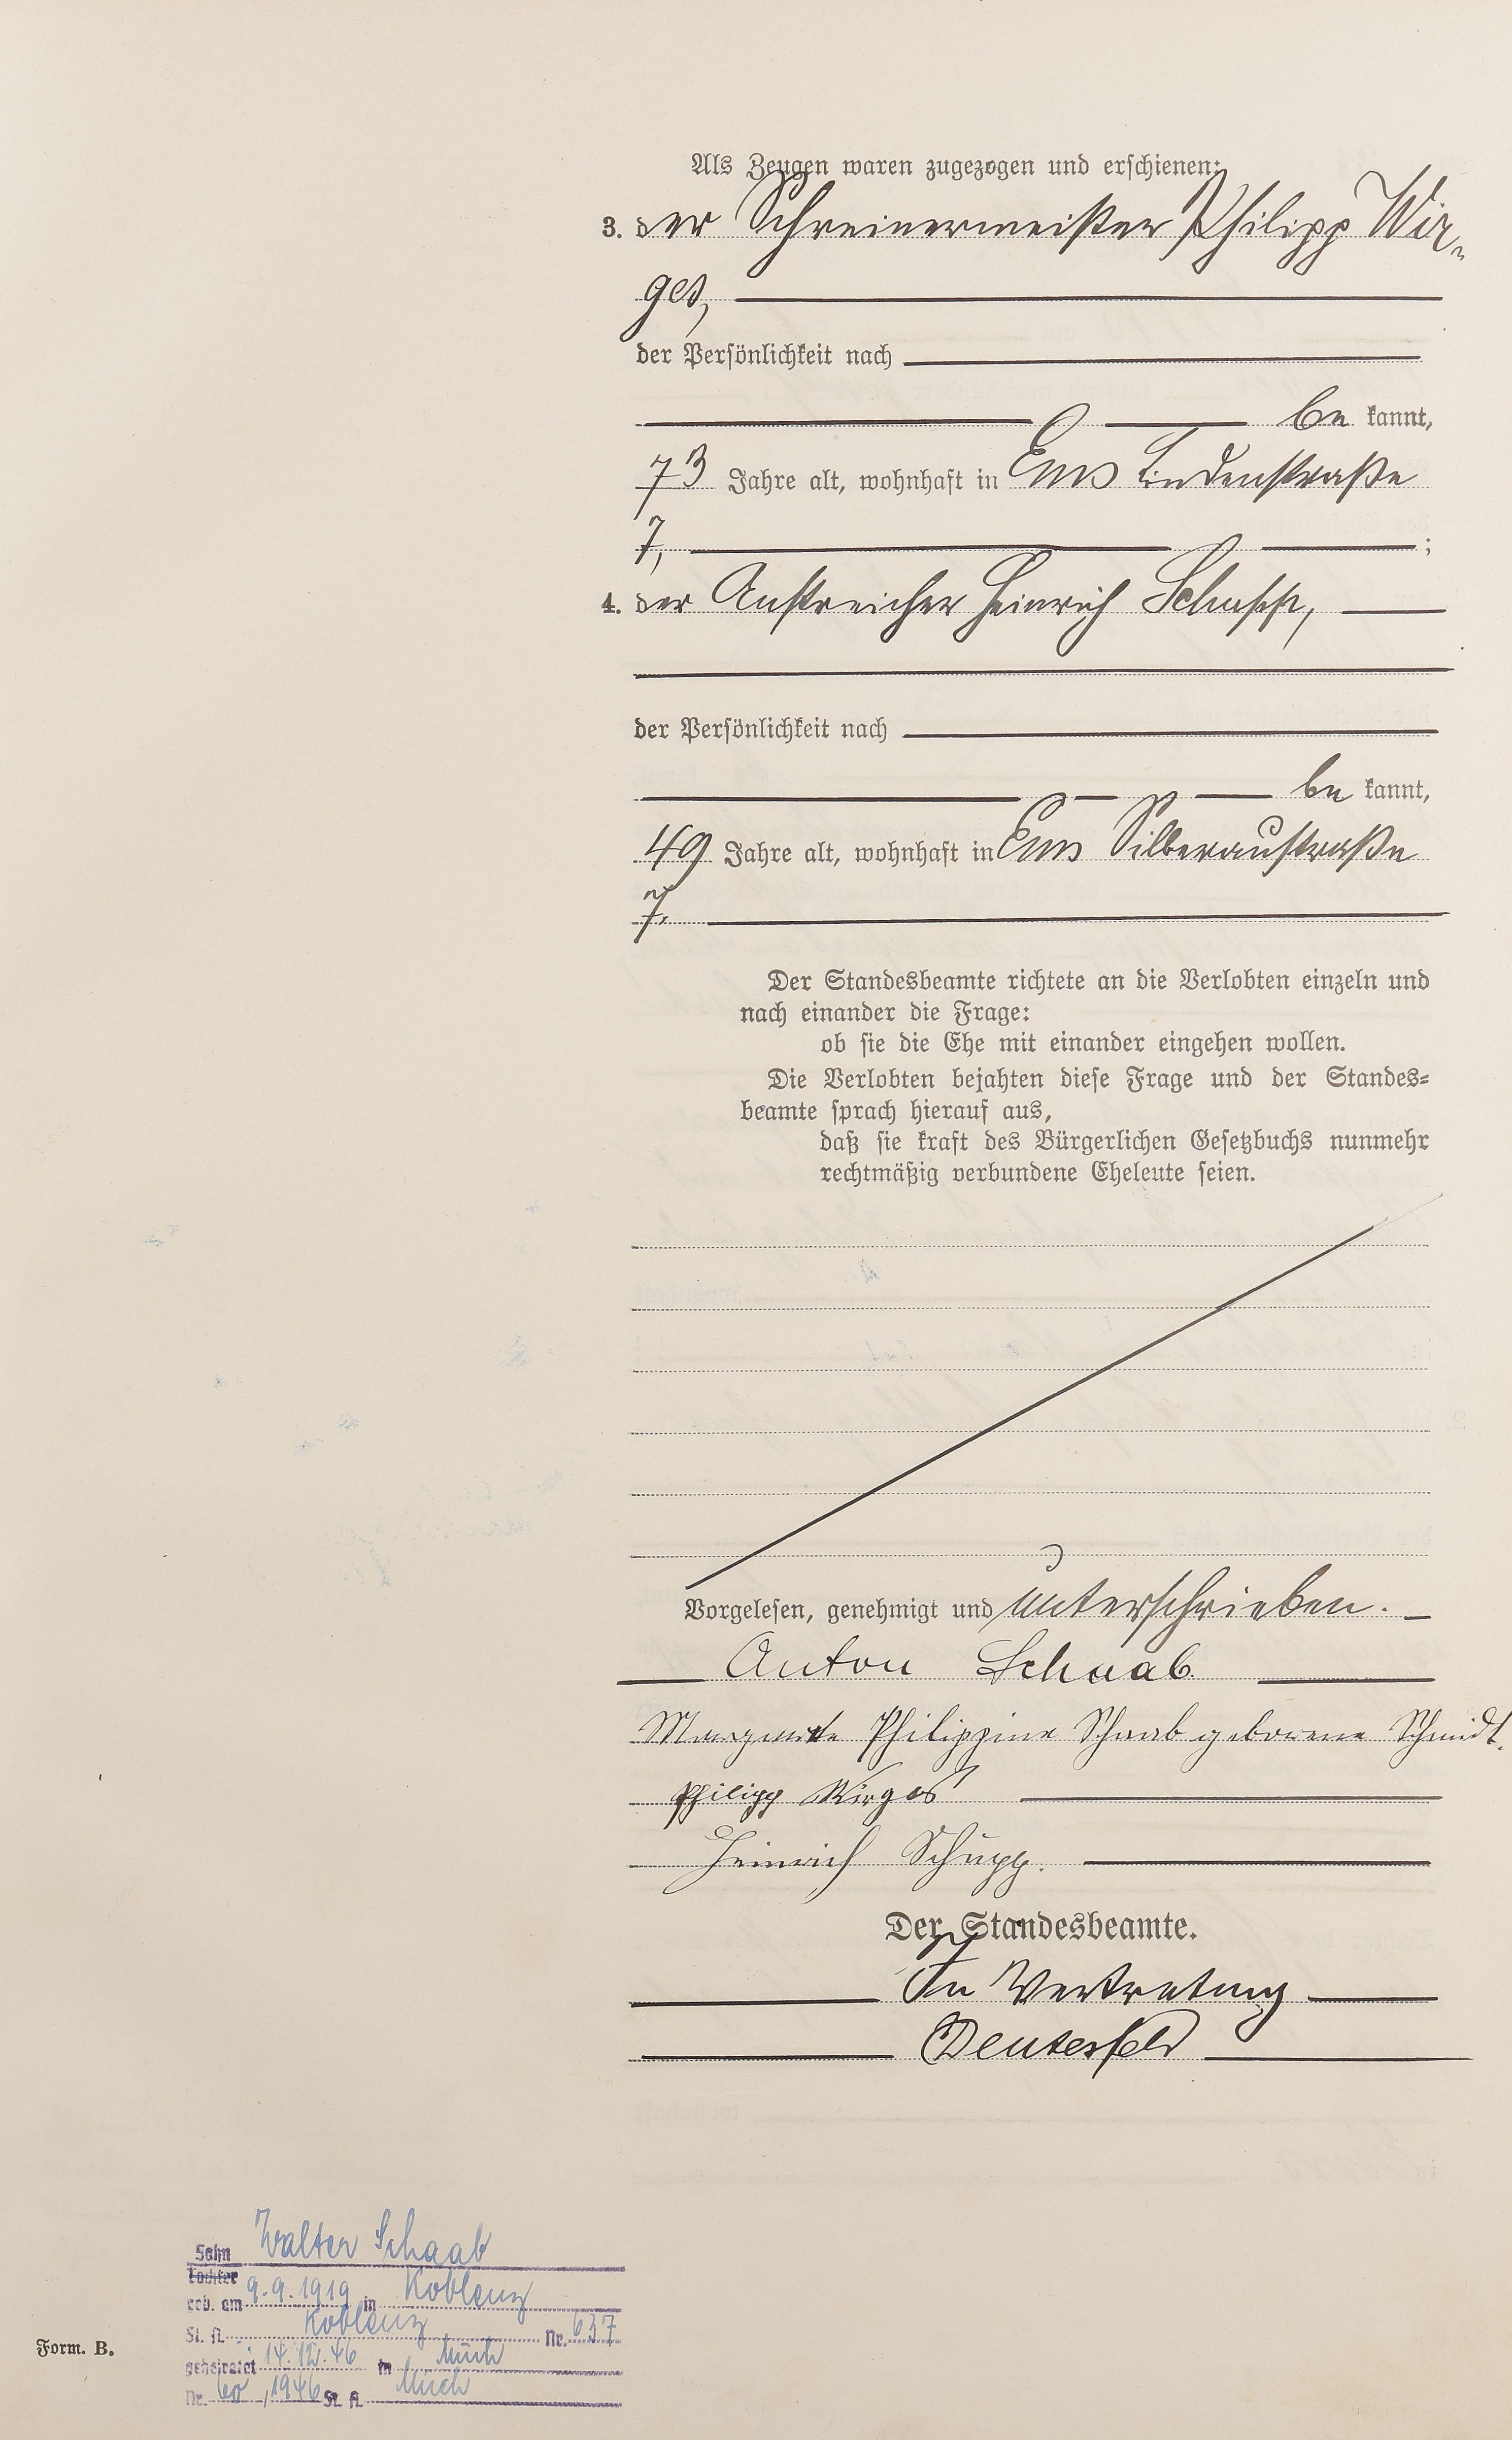 Als Zeugen waren zugezogen und erschienen:
3. der Schreinermeister Philipp Wir-
ges,
der Persönlichkeit nach
be kannt,
73 Jahre alt, wohnhaft in Ems Lindenstraße
7, ;
4. der Anstreicher Heinrich Schupp,
der Persönlichkeit nach
be kannt,
49 Jahre alt, wohnhaft in Ems Silberaustraße
7.
Der Standesbeamte richtete an die Verlobten einzeln und
nach einander die Frage:
ob sie die Ehe mit einander eingehen wollen.
Die Verlobten bejahten diese Frage und der Standes=
beamte sprach hierauf aus,
daß sie kraft des Bürgerlichen Gesetzbuchs nunmehr
rechtmäßig verbundene Eheleute seien.
Vorgelesen, genehmigt und unterschrieben.
Anton Schaab.
Margarete Philippine Schaab geborene Schmidt.
Philipp Wirges
Heinrich Schupp.
Der Standesbeamte.
In Vertretung
Sohn Walter Schaab
Tochter
geb. am 9.9.1919 in Koblenz
St. A. Koblenz Nr. 637
geheiratet 14.12.46 in Much
Nr. 60, 1946 St. A. Much
Form. B.